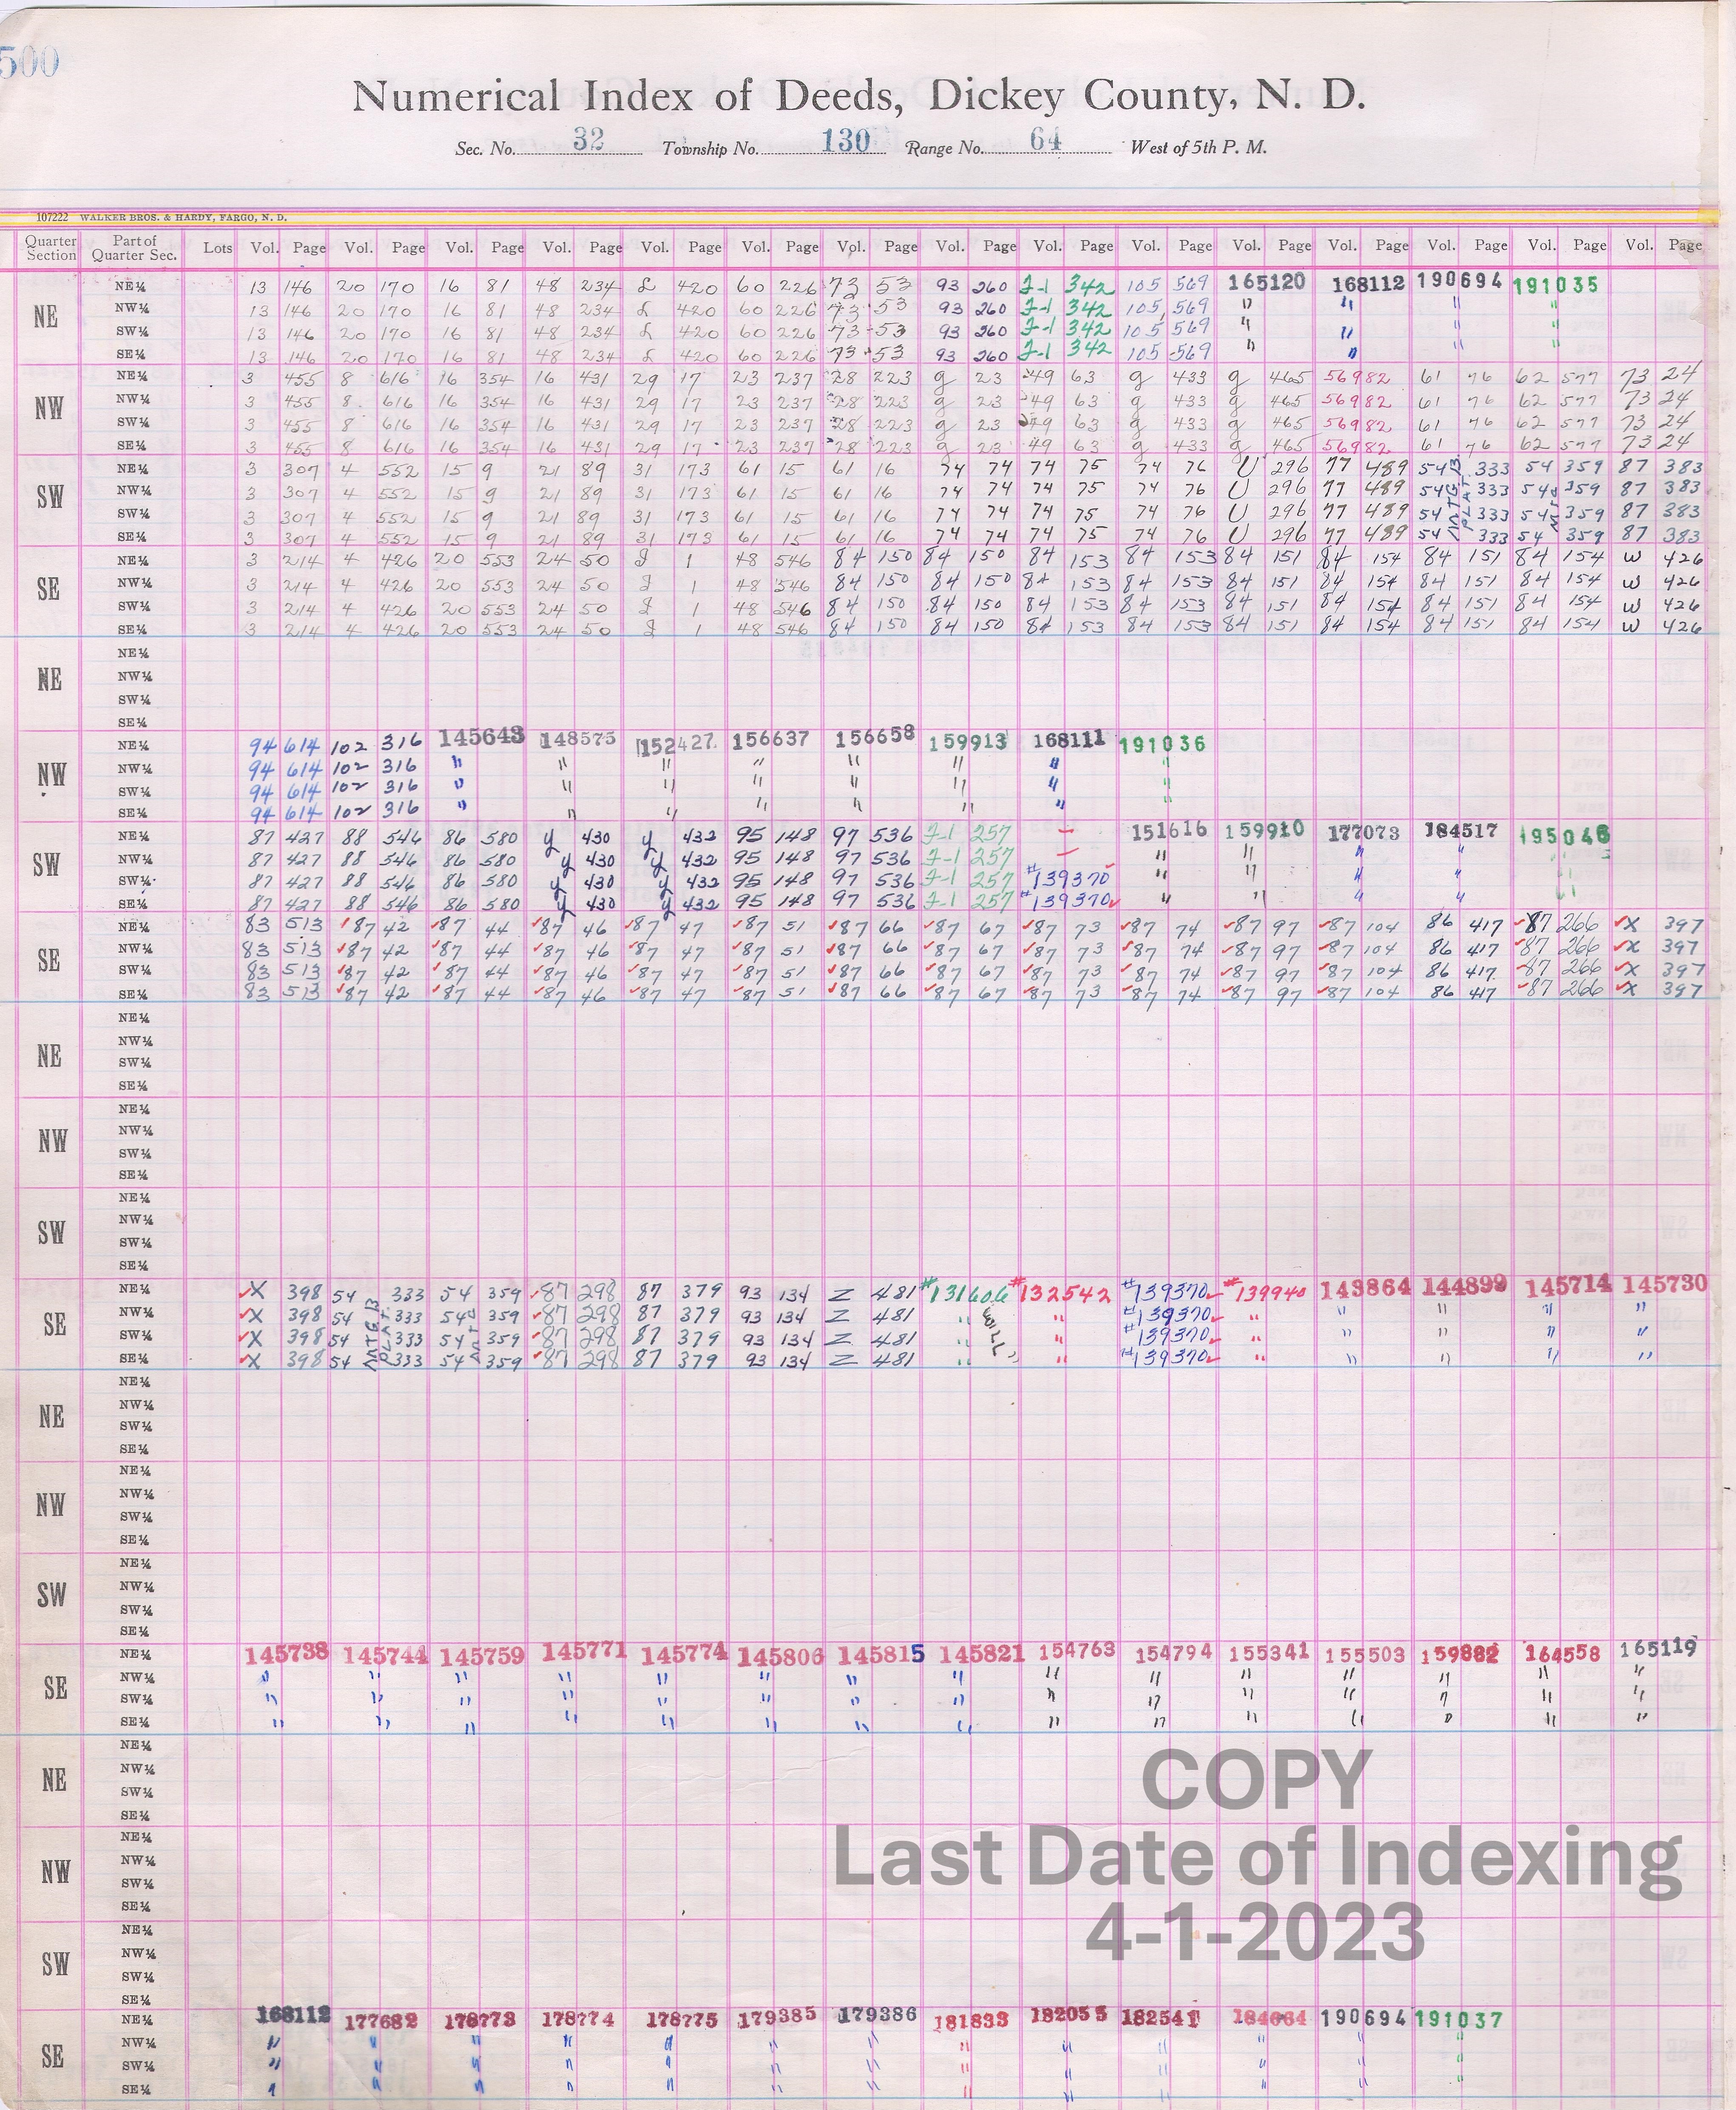 500
Numerical Index of Deeds, Dickey County, N. D.
Sec. No. 32 Township No. 130 Range No. 64 West of 5th P. M.
107222 WALKER BROS. & HARDY, FARGO, N. D.
Quarter Section Part of Quarter Sec. Lots Vol. Page Vol. Page Vol. Page Vol. Page Vol. Page Vol. Page Vol. Page Vol. Page Vol. Page Vol. Page Vol. Page Vol. Page Vol. Page Vol. Page Vol. Page
NE
NE¼ 13 146 20 170 16 81 48 234 £ 420 60 226 73 53 93 260 I-1 342 105 569 165120 168112 190694 191035
NW¼ 13 146 20 170 16 81 48 234 £ 420 60 226 73 53 93 260 I-1 342 105 569 " " " "
SW¼ 13 146 20 170 16 81 48 234 £ 420 60 226 73 53 93 260 I-1 342 105 569 " " " "
SE¼ 13 146 20 170 16 81 48 234 £ 420 60 226 73 53 93 260 I-1 342 105 569 " " " "
NW
NE¼ 3 455 8 616 16 354 16 431 29 17 23 237 28 223 g 23 49 63 g 433 g 465 56982 61 76 62 577 73 24
NW¼ 3 455 8 616 16 354 16 431 29 17 23 237 28 223 g 23 49 63 g 433 g 465 56982 61 76 62 577 73 24
SW¼ 3 455 8 616 16 354 16 431 29 17 23 237 28 223 g 23 49 63 g 433 g 465 56982 61 76 62 577 73 24
SE¼ 3 455 8 616 16 354 16 431 29 17 23 237 28 223 g 23 49 63 g 433 g 465 56982 61 76 62 577 73 24
SW
NE¼ 3 307 4 552 15 9 21 89 31 173 61 15 61 16 74 74 74 75 74 76 U 296 77 489 54 333 54 359 87 383
NW¼ 3 307 4 552 15 9 21 89 31 173 61 15 61 16 74 74 74 75 74 76 U 296 77 489 54 333 54 359 87 383
SW¼ 3 307 4 552 15 9 21 89 31 173 61 15 61 16 74 74 74 75 74 76 U 296 77 489 54 333 54 359 87 383
SE¼ 3 307 4 552 15 9 21 89 31 173 61 15 61 16 74 74 74 75 74 76 U 296 77 489 54 333 54 359 87 383
SE
NE¼ 3 214 4 426 20 553 24 50 1 48 546 84 150 84 150 84 153 84 153 84 151 84 154 84 151 84 154 W 426
NW¼ 3 214 4 426 20 553 24 50 1 48 546 84 150 84 150 84 153 84 153 84 151 84 154 84 151 84 154 W 426
SW¼ 3 214 4 426 20 553 24 50 1 48 546 84 150 84 150 84 153 84 153 84 151 84 154 84 151 84 154 W 426
SE¼ 3 214 4 426 20 553 24 50 1 48 546 84 150 84 150 84 153 84 153 84 151 84 154 84 151 84 154 W 426
NE
NE¼
NW¼
SW¼
SE¼
NW
NE¼ 94 614 102 316 145643 148575 152427 156637 156658 159913 168111 191036
NW¼ 94 614 102 316 " " " " " " " "
SW¼ 94 614 102 316 " " " " " " " "
SE¼ 94 614 102 316 " " " " " " " "
SW
NE¼ 87 427 88 546 86 580 y 430 y 432 95 148 97 536 I-1 257 – 151616 159910 177073 184517 195046
NW¼ 87 427 88 546 86 580 y 430 y 432 95 148 97 536 I-1 257 – " " " " "
SW¼ 87 427 88 546 86 580 y 430 y 432 95 148 97 536 I-1 257 #139370 " " " " "
SE¼ 87 427 88 546 86 580 y 430 y 432 95 148 97 536 I-1 257 #139370✓ " " " " "
SE
NE¼ 83 513 ✓87 42 ✓87 44 ✓87 46 ✓87 47 ✓87 51 ✓87 66 ✓87 67 ✓87 73 ✓87 74 ✓87 97 ✓87 104 86 417 ✓87 266 ✓X 397
NW¼ 83 513 ✓87 42 ✓87 44 ✓87 46 ✓87 47 ✓87 51 ✓87 66 ✓87 67 ✓87 73 ✓87 74 ✓87 97 ✓87 104 86 417 ✓87 266 ✓X 397
SW¼ 83 513 ✓87 42 ✓87 44 ✓87 46 ✓87 47 ✓87 51 ✓87 66 ✓87 67 ✓87 73 ✓87 74 ✓87 97 ✓87 104 86 417 ✓87 266 ✓X 397
SE¼ 83 513 ✓87 42 ✓87 44 ✓87 46 ✓87 47 ✓87 51 ✓87 66 ✓87 67 ✓87 73 ✓87 74 ✓87 97 ✓87 104 86 417 ✓87 266 ✓X 397
NE
NE¼
NW¼
SW¼
SE¼
NW
NE¼
NW¼
SW¼
SE¼
SW
NE¼
NW¼
SW¼
SE¼
SE
NE¼ ✓X 398 54 333 54 359 ✓87 298 87 379 93 134 Z 481 #131606 #132542 #139370✓ #139940 143864 144899 145714 145730
NW¼ ✓X 398 54 333 54 359 ✓87 298 87 379 93 134 Z 481 " WILL " #139370✓ " " " " "
SW¼ ✓X 398 54 333 54 359 ✓87 298 87 379 93 134 Z 481 " " #139370✓ " " " " "
SE¼ ✓X 398 54 333 54 359 ✓87 298 87 379 93 134 Z 481 " " #139370✓ " " " " "
NE
NE¼
NW¼
SW¼
SE¼
NW
NE¼
NW¼
SW¼
SE¼
SW
NE¼
NW¼
SW¼
SE¼
SE
NE¼ 145738 145744 145759 145771 145774 145806 145815 145821 154763 154794 155341 155503 159882 164558 165119
NW¼ " " " " " " " " " " " " " " "
SW¼ " " " " " " " " " " " " " " "
SE¼ " " " " " " " " " " " " " " "
NE
NE¼
NW¼
SW¼
SE¼
NW
NE¼
NW¼
SW¼
SE¼
SW
NE¼
NW¼
SW¼
SE¼
COPY
Last Date of Indexing
4-1-2023
SE
NE¼ 168112 177682 178773 178774 178775 179385 179386 181833 182053 182541 184664 190694 191037
NW¼ " " " " " " " " " " " " "
SW¼ " " " " " " " " " " " " "
SE¼ " " " " " " " " " " " " "